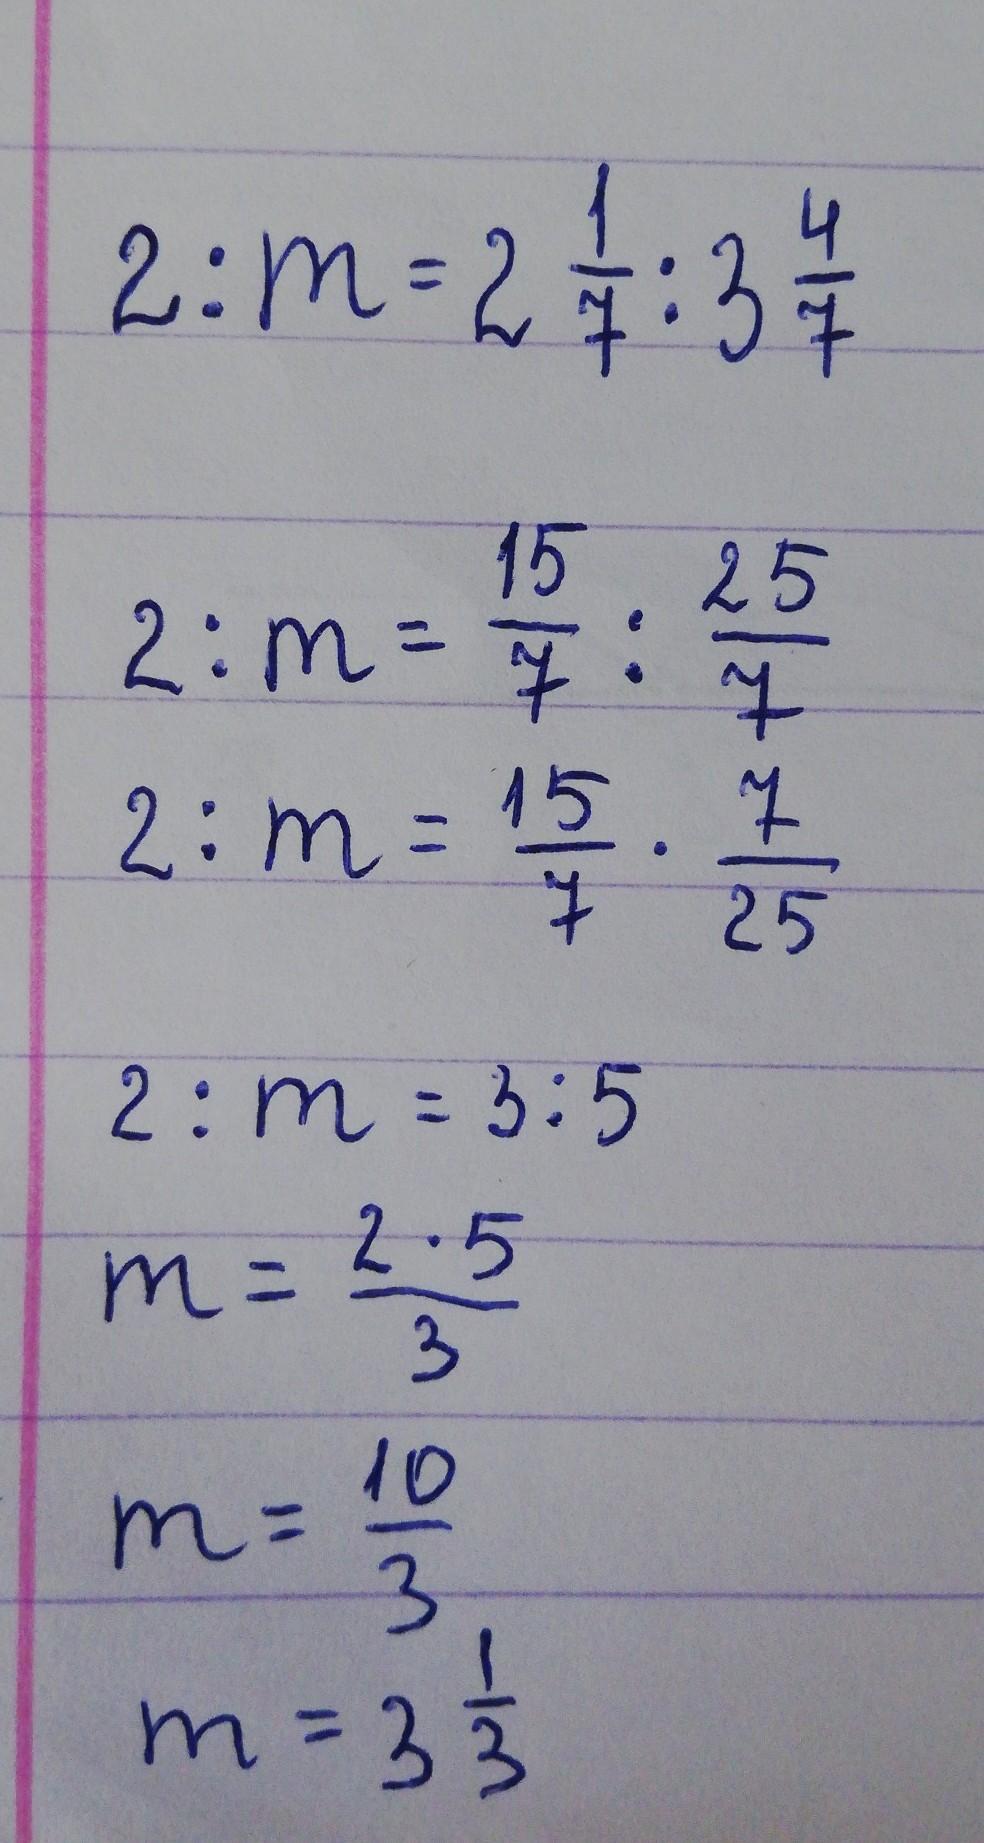 2 : m = 2 1/7 : 3 4/7
2 : m = 15/7 : 25/7
2 : m = 15/7 · 7/25
2 : m = 3 : 5
m = 2 · 5/3
m = 10/3
m = 3 1/3